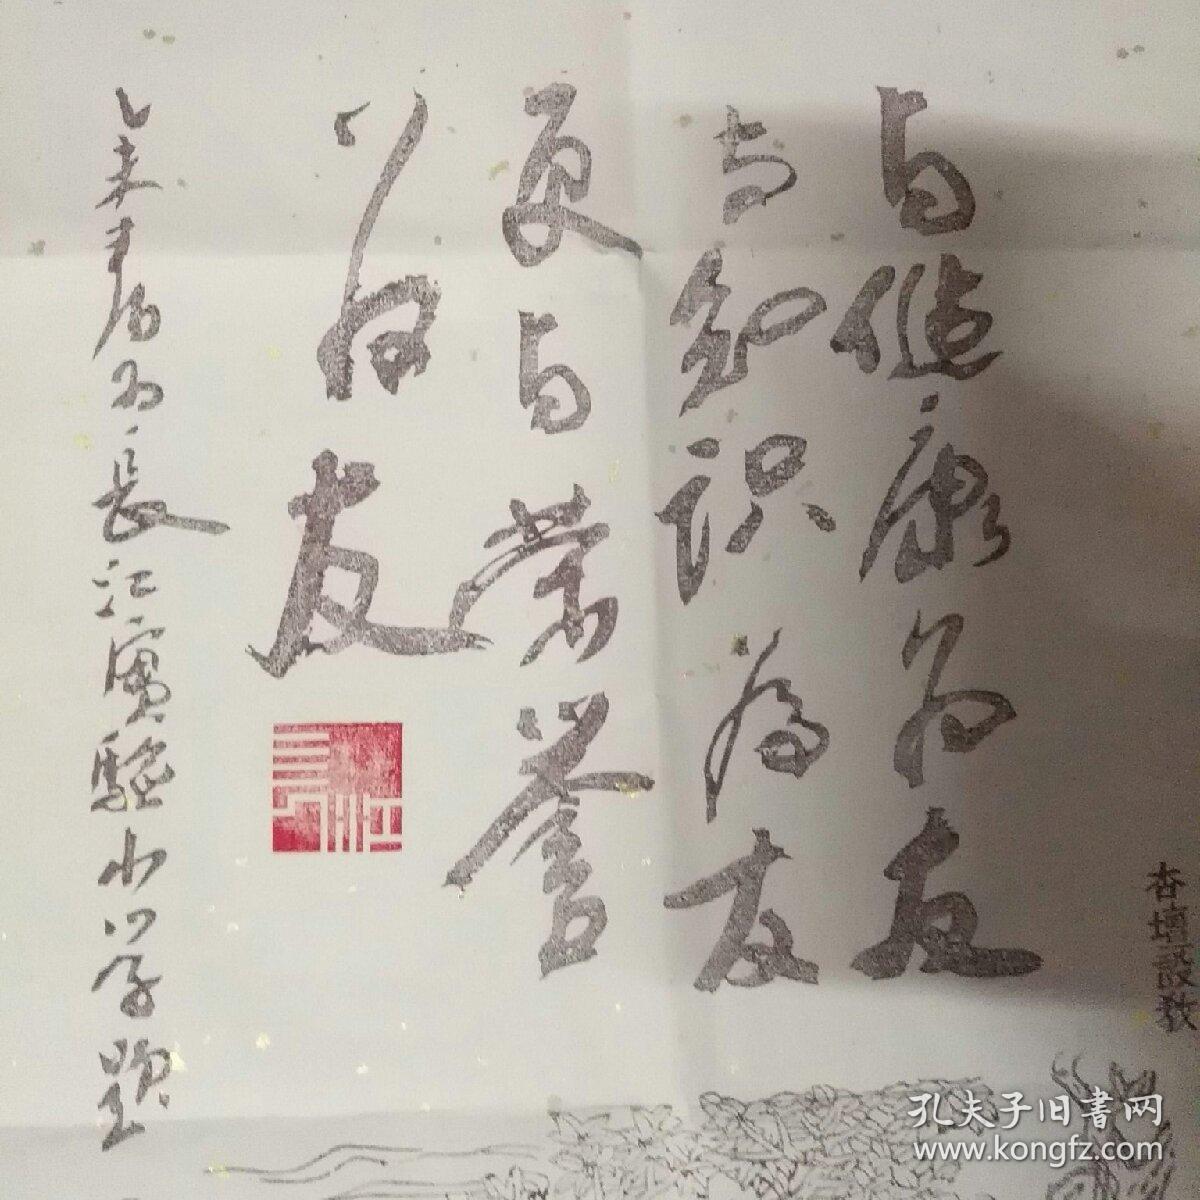 与健康为友
与知识为友
更与荣誉
为友
乙未春为长江實驗小学题
杏壇設教
孔夫子旧書网
www.kongfz.com